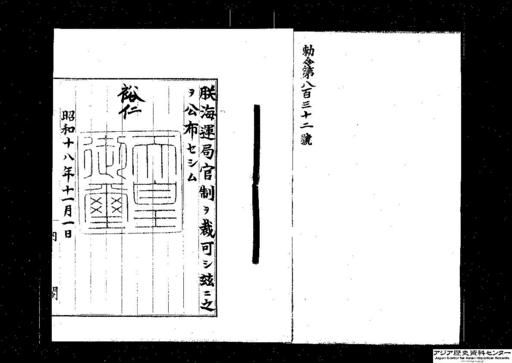 勅令第八百三十二號
朕海運局官制ヲ裁可シ玆ニ之
ヲ公布セシム
裕仁
天皇
御璽
昭和十八年十一月一日
内閣
アジア歴史資料センター
Japan Center for Asian Historical Records